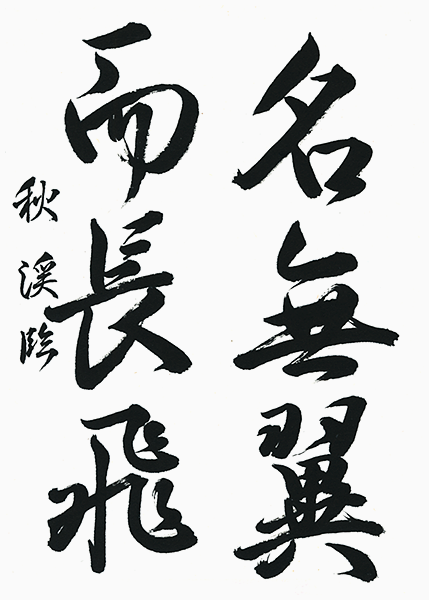 名無翼
而長飛
秋渓臨